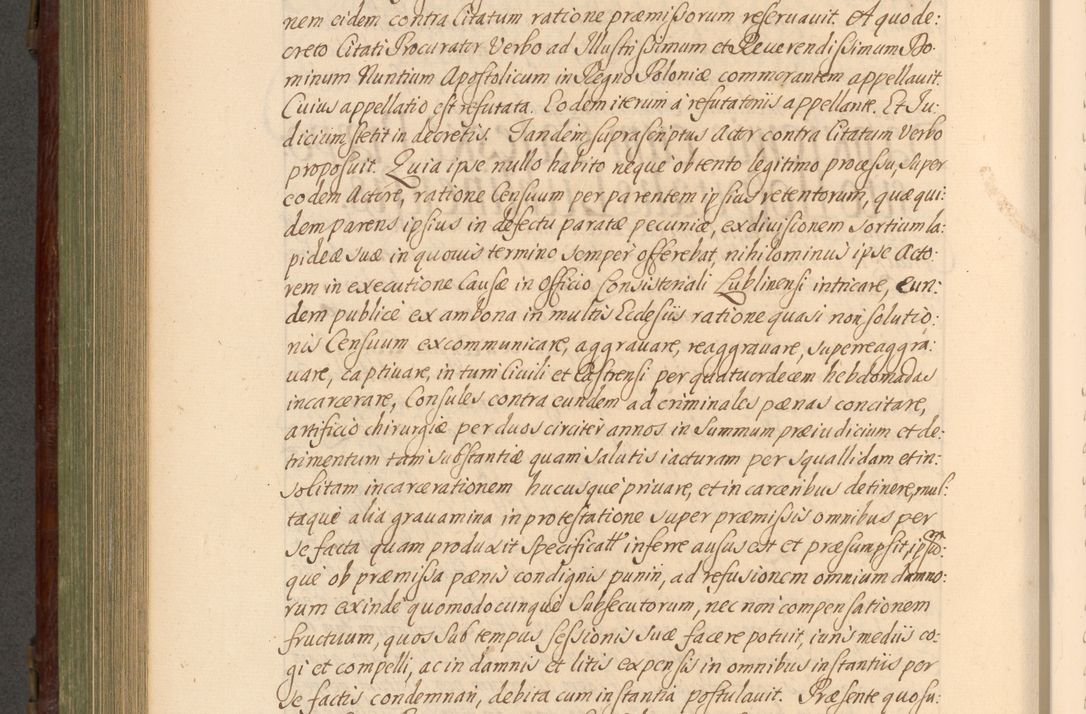 nem eidem contra Citatum ratione præmissorum reservauit. A quo de:
creto Citati Procurator Verbo ad Illustrissimum et Reuerendissimum Do:
minum Nuntium Apostolicum in Regno Poloniæ commorantem appellauit.
Cuius appellatio est refutata. Eodem iterum à refutatoriis appellante. Et Ju:
dicium stetit in decretis. Tandem suprascriptus Actor contra Citatum Verbo
proposuit. Quia ipse nullo habito neque obtento legitimo processu, super
eodem Actore, ratione Censuum per parentem ipsius retentorum, quæ qui:
dem parens ipsius in defectu paratæ pecuniæ, ex divisionem sortium la:
pideæ suæ in quouis termino semper offerebat, nihilominus ipse Acto:
rem in executione Causæ in Officio Consistoriali Lublinensi intricare, eun:
dem publicè ex ambona in multis Ecclesiis ratione quasi non solutio:
nis Censuum excommunicare, aggrauare, reaggrauare, superreaggra:
uare, captiuare, in turri Ciuili et Castrensi per quatuordecem hebdomadas
incarcerare, Consules contra eundem ad criminales pœnas concitare,
artificio chirurgiæ per duos circiter annos in Summum præiudicium et de:
trimentum tam substantiæ quam salutis iacturam per squallidam et in:
solitam incarcerationem hucusque priuare, et in carceribus detinere, mul:
taque alia grauamina in protestatione super præmissis omnibus per
se facta quam produxit specificatt inferre ausus est et præsumpsit, ipsum:
què ob præmissa pœnis condignis puniri, ad refusionem omnium damno:
rum exinde quomodocunque subsecutorum, nec non compensationem
fructuum, quos sub tempus sessionis suæ facere potuit, iuris mediis co:
gi et compelli, ac in damnis et litis expensis in omnibus instantiis per
se factis condemnari, debita cum instantia postulauit. Præsente quo su: